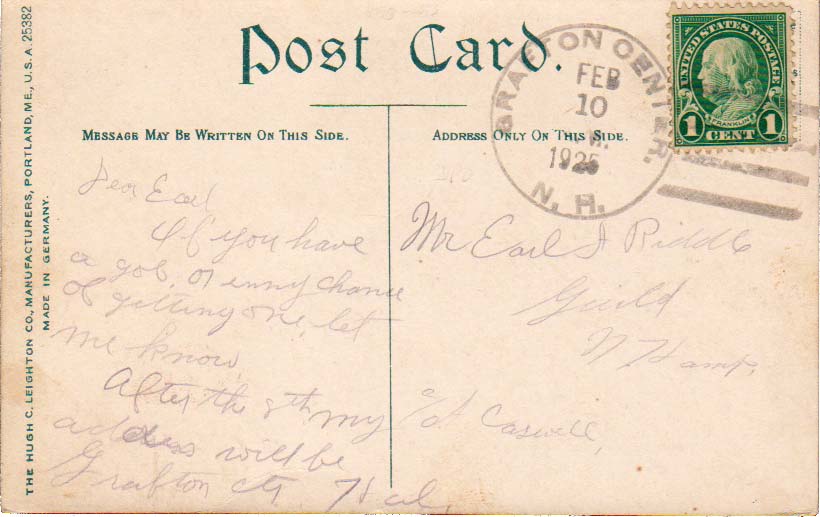 Post Card.
MESSAGE MAY BE WRITTEN ON THIS SIDE.
ADDRESS ONLY ON THIS SIDE.
THE HUGH C. LEIGHTON CO., MANUFACTURERS, PORTLAND, ME., U.S.A. 25382
MADE IN GERMANY.
GRAFTON CENTER.
FEB
10
1925
N. H.
UNITED STATES POSTAGE
FRANKLIN
1 CENT 1
Dear Earl
If you have
a gob, or enny chance
of getting one, let
me know.
After the 8th my
address will be
Grafton ctr. Hal,
Mr Earl J Riddle
Guild
N Hamp,
Caswell,